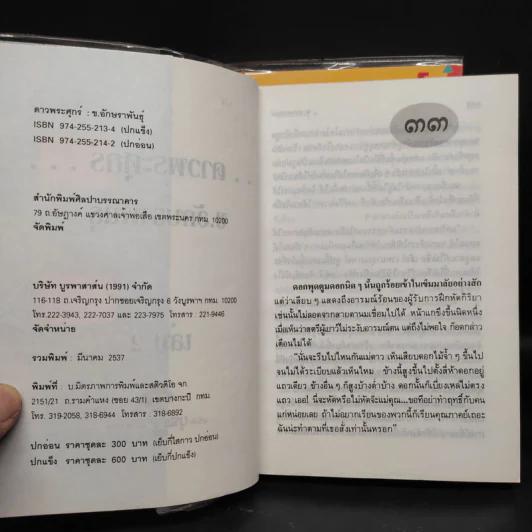 ดาวพระศุกร์ : ข.อักษราพันธุ์
ISBN 974-255-213-4 (ปกแข็ง)
ISBN 974-255-214-2 (ปกอ่อน)
สำนักพิมพ์ศิลปาบรรณาคาร
79 ถ.อัษฎางค์ แขวงศาลเจ้าพ่อเสือ เขตพระนคร กทม. 10200
จัดพิมพ์
บริษัท บูรพาสาส์น (1991) จำกัด
116-118 ถ.เจริญกรุง ปากซอยเจริญกรุง 6 วังบูรพา กทม. 10200
โทร.222-3943, 222-7037 และ 223-7975 โทรสาร : 221-9446
จัดจำหน่าย
รวมพิมพ์ : มีนาคม 2537
พิมพ์ที่ : บ.มิตรภาพการพิมพ์และสติวดิโอ จก.
2151/21 ถ.รามคำแหง (ซอย 43/1) เขตบางกะปิ กทม.
โทร. 319-2058, 318-6944 โทรสาร : 318-6892
ปกอ่อน ราคาชุดละ 300 บาท (เย็บกี่ไสกาว ปกอ่อน)
ปกแข็ง ราคาชุดละ 600 บาท (เย็บกี่ปกแข็ง)
๓๓
ดอกพุดตูมดอกนิด ๆ นั้นถูกร้อยเข้าในเข็มมาลัยอย่างสัก
แต่ว่าเสียบ ๆ แสดงถึงอารมณ์ร้อนของผู้รับการฝึกหัดกิริยา
เช่นนั้นไม่ลอดจากสายตานมเชื่อมไปได้ หน้าแกขึ้งขึ้นนิดหนึ่ง
เมื่อเห็นว่าสตรีผู้เยาว์ไม่ระงับอารมณ์ตน แต่ถึงไม่พอใจ ก็อดกล่าว
เตือนไม่ได้
“นั่นจะรีบไปไหนกันแม่ดาว เห็นเสียบดอกไม้จ้ำ ๆ ขึ้นไป
จนไม่ได้ระเบียบแล้วเห็นไหม ข้างนี้สูงขึ้นไปตั้งสี่ห้าดอกอยู่
แถวเดียว ข้างอื่น ๆ ก็สูงบ้างต่ำบ้าง ดอกนั้นก็เบี้ยงเหลไม่ตรง
แถว เออ! นี่จะหัดหรือไม่หัดจ๊ะแม่คุณ...ขอทีอย่าทำฤทธิ์กับคน
แก่หน่อยเลย ถ้าไม่อยากเรียนของพวกนี้ก็เรียนคุณภาคย์เถอะ
ฉันน่ะทำตามที่เธอสั่งเท่านั้นหรอก”